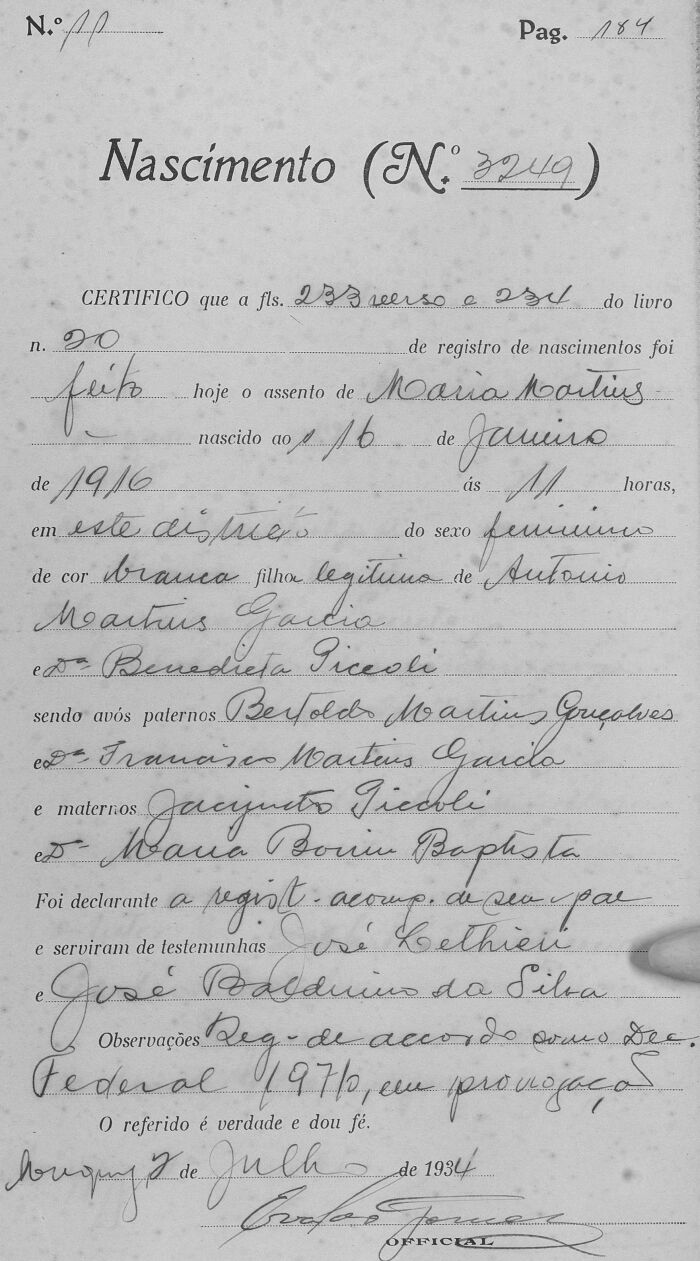 N.º 11 Pag. 184
Nascimento (N.º 3249)
CERTIFICO que a fls. 233 verso e 234 do livro
n. 20 de registro de nascimentos foi
feito hoje o assento de Maria Martins
nascido ao 16 de Janeiro
de 1916 ás 11 horas,
em este districto do sexo feminino
de cor branca filha legitima de Antonio
Martins Garcia
e Dª Benedicta Piccoli
sendo avós paternos Bertoldo Martins Gonçalves
e Dª Francisca Martins Garcia
e maternos Jacyntho Piccoli
e Dª Maria Bonin Baptista
Foi declarante a regist. acomp. de seu pae
e serviram de testemunhas José
e José Balduino da Silva
Observações Reg. de accordo com o Dec.
Federal 19710, em prorrogação
O referido é verdade e dou fé.
2 de Julho de 1934
OFFICIAL